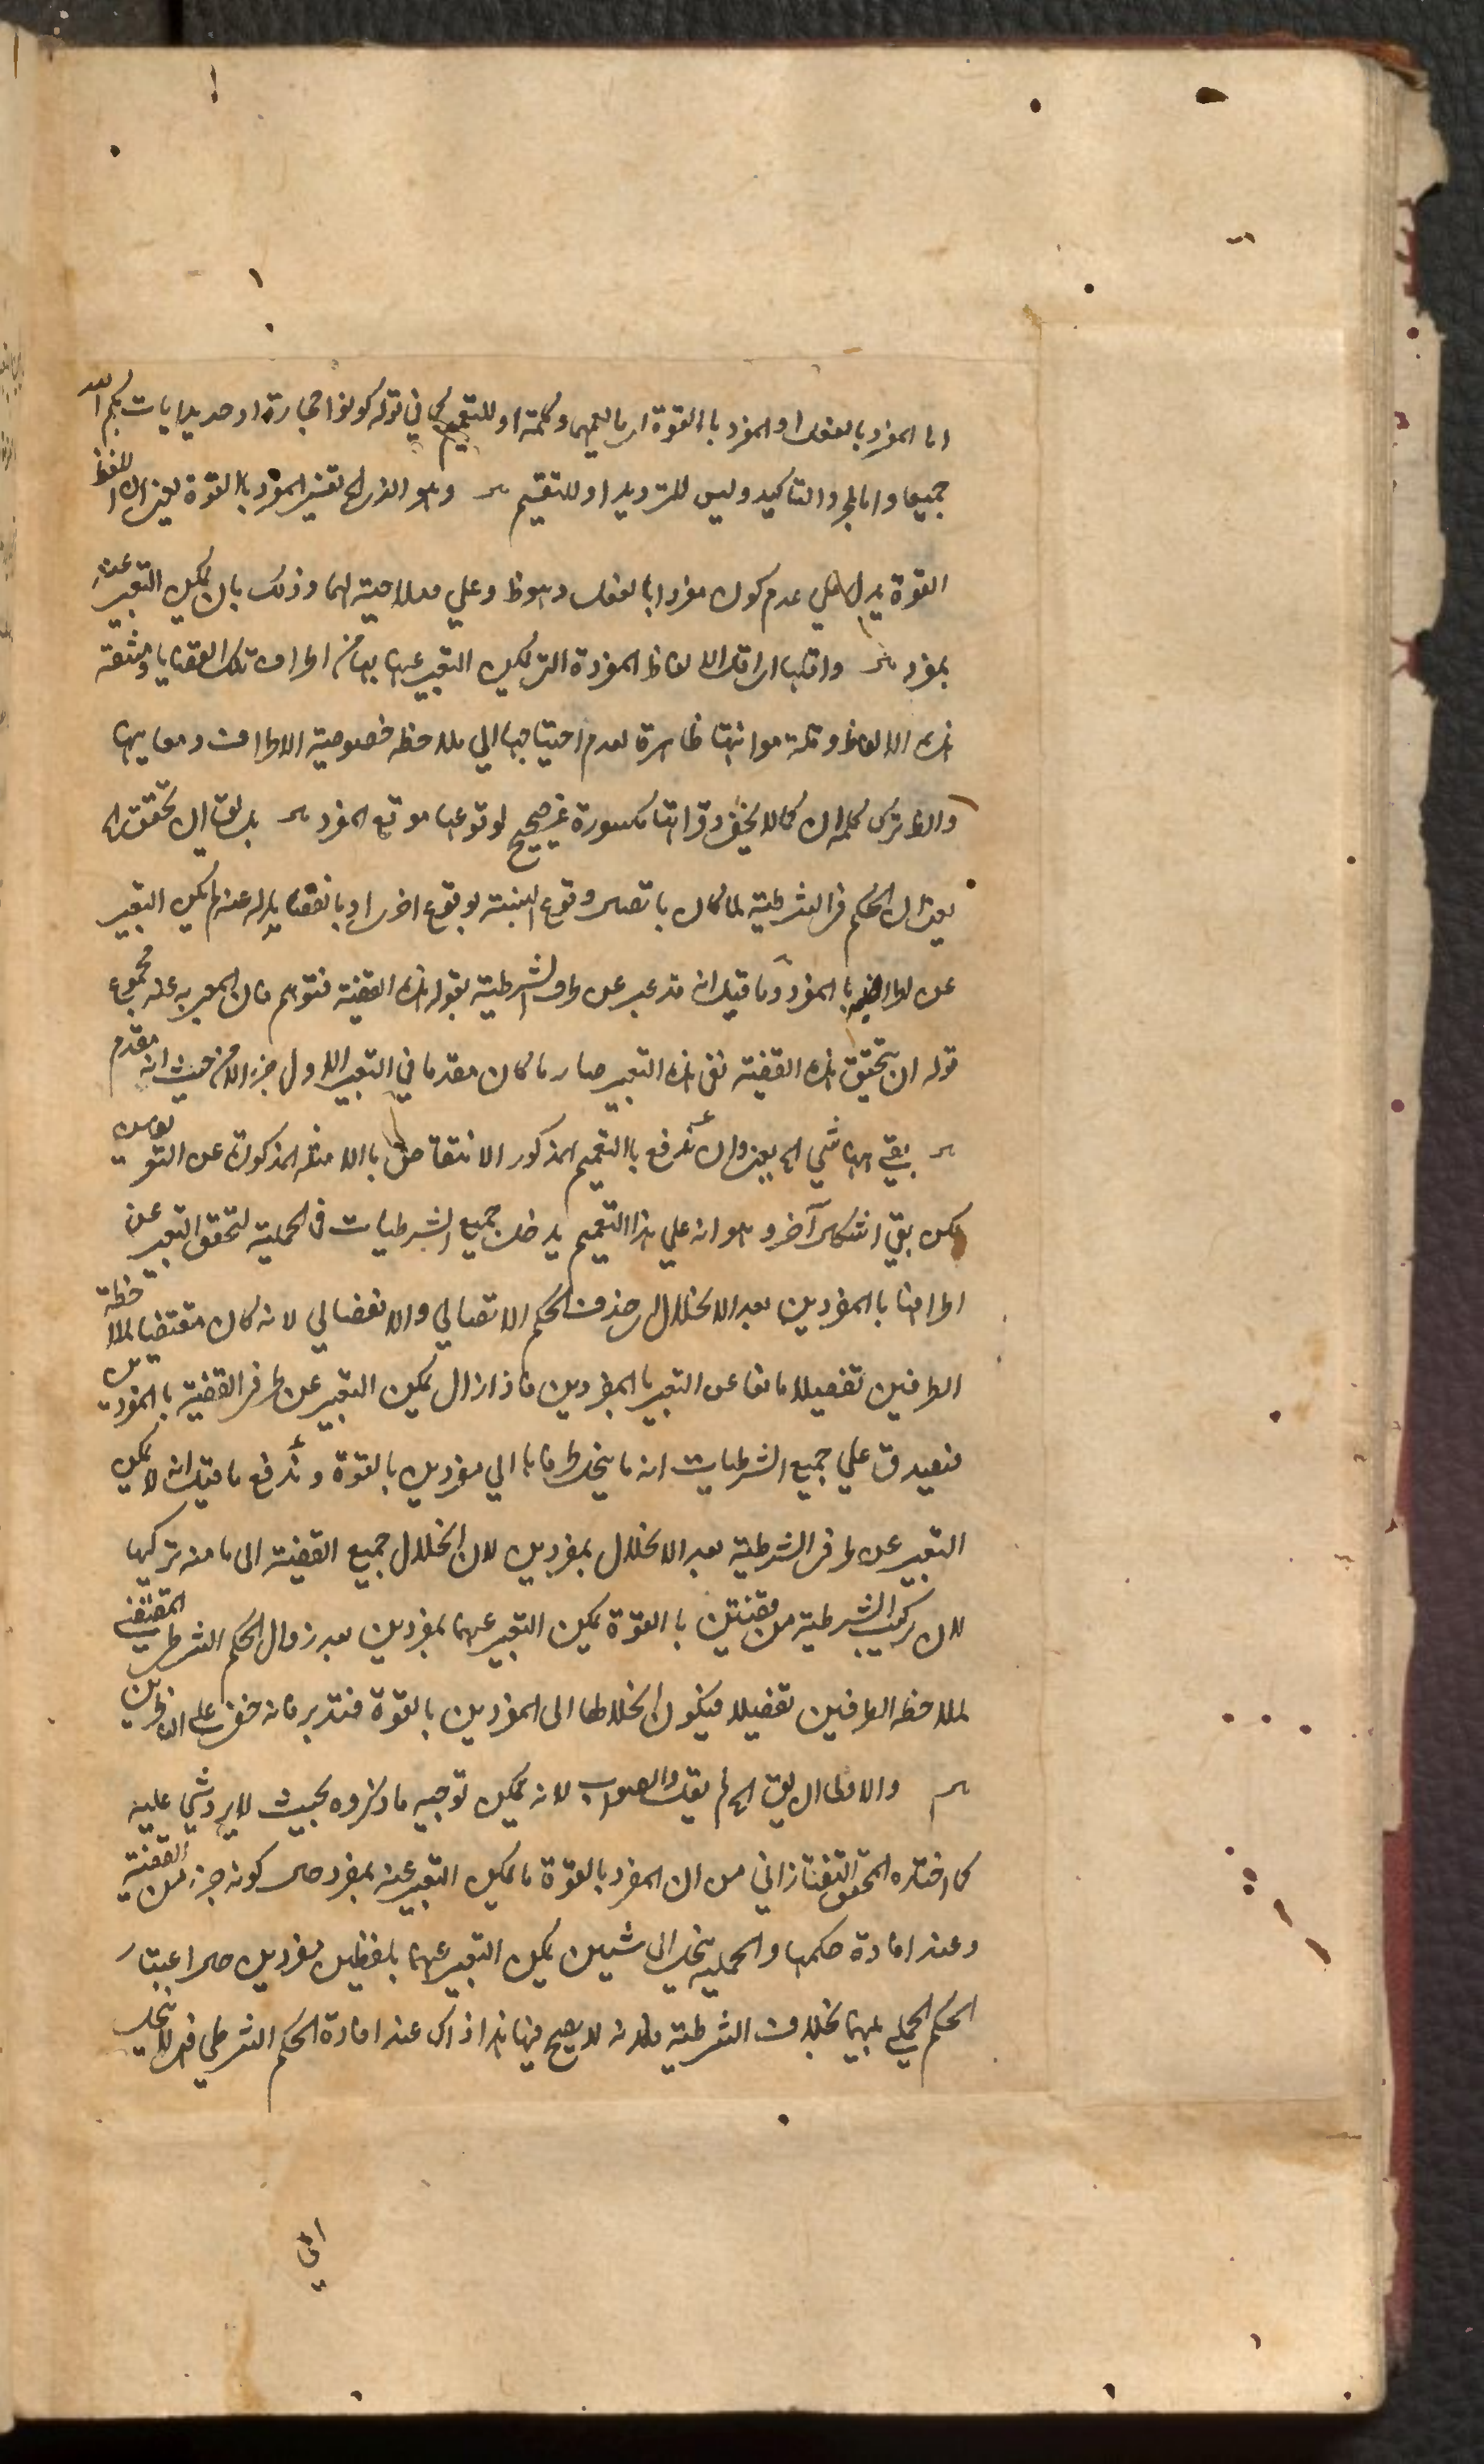 اما المفرد بالفعل او المفرد بالقوة اى بالعمها وكلمة او للتعميم كما في قوله كونوا حجارة او حديدا يات بكم الله
جميعا واما لمجرد التاكيد وليس للترديد او للتقسيم وهو الذى الخ تفسير المفرد بالقوة يعنى ان اللفظ
القوة يدل على عدم كونه مفردا بالفعل وهو ظ وعلي صلاحيته لها وذلك بان يمكن التعبير عنه
بمفرد واقلها اى اقل الالفاظ المفردة التى يمكن التعبير بها عن اطراف تلك القضايا
هذه الالفاظ وقلة مؤانتها ظاهرة لعدم احتياجها الي ملاحظة خصوصية الاطراف ومعانيها
والظ ترك كلمة ان كما لا يخفى وقراءتها مكسورة غير صحيح لوقوعها موقع المفرد بل يقال ان تحقق الخ
يعنى ان الحكم في الشرطية لما كان باتصال وقوع النسبة بوقوع اخرى او بانفصاله عنه لم يكن التعبير
عن اطرافها بالمفرد وما قيل انه قد عبر عن طرف الشرطية بقوله هذه القضية فتوهم فان المعبر به عنه مجموع
قوله ان تحقق هذه القضية نفى هذه التعبير صار ما كان مقدما في التعبير الاول جزء من حيث انه مقدم
بقي ههنا شي الخ يعنى وان اندفع بالتعميم المذكور الانتقاض بالامثلة المذكورة عن التعريف
لكن بقي اشكال آخر وهو انه علي هذا التعميم يدخل جميع الشرطيات في الحملية لتحقق التعبير عن
اطرافها بالمفردين بعد الانحلال اى حذف الحكم الاتصالي والانفصالي لانه كان مقتضيا لملاحظة
الطرفين تفصيلا مانعا عن التعبير بالمفردين فاذا زال يمكن التعبير عن طرفى القضية بالمفردين
فيصدق علي جميع الشرطيات انه ما ينحل طرفاها الي مفردين بالقوة واندفع ما قيل انه لا يمكن
التعبير عن طرفى الشرطية بعد الانحلال بمفردين لان انحلال جميع القضية الى ما منه تركيبها
لان تركيب الشرطية من قضيتين بالقوة يمكن التعبير عنهما بمفردين بعد زوال الحكم الشرطي المقتضي
لملاحظة الطرفين تفصيلا فيكون انحلالها الى المفردين بالقوة فتدبر فانه خفى على الناظرين
والاولى ان يق الخ لم يقل والصواب لانه يمكن توجيه ما ذكروه بحيث لا يرد شي عليه
كما اختاره المحقق التفتازاني من ان المفرد بالقوة ما يمكن التعبير عنه بمفرد حال كونه جزء من القضية
وعند افادة حكمها والحملية ينحل الى شيئين يمكن التعبير عنهما بلفظين مفردين حال اعتبار
الحكم الحملي بينهما بخلاف الشرطية فانه لا يصح فيها هذا اذ اك عند افادة الحكم الشرطي فلا ينحل
الي